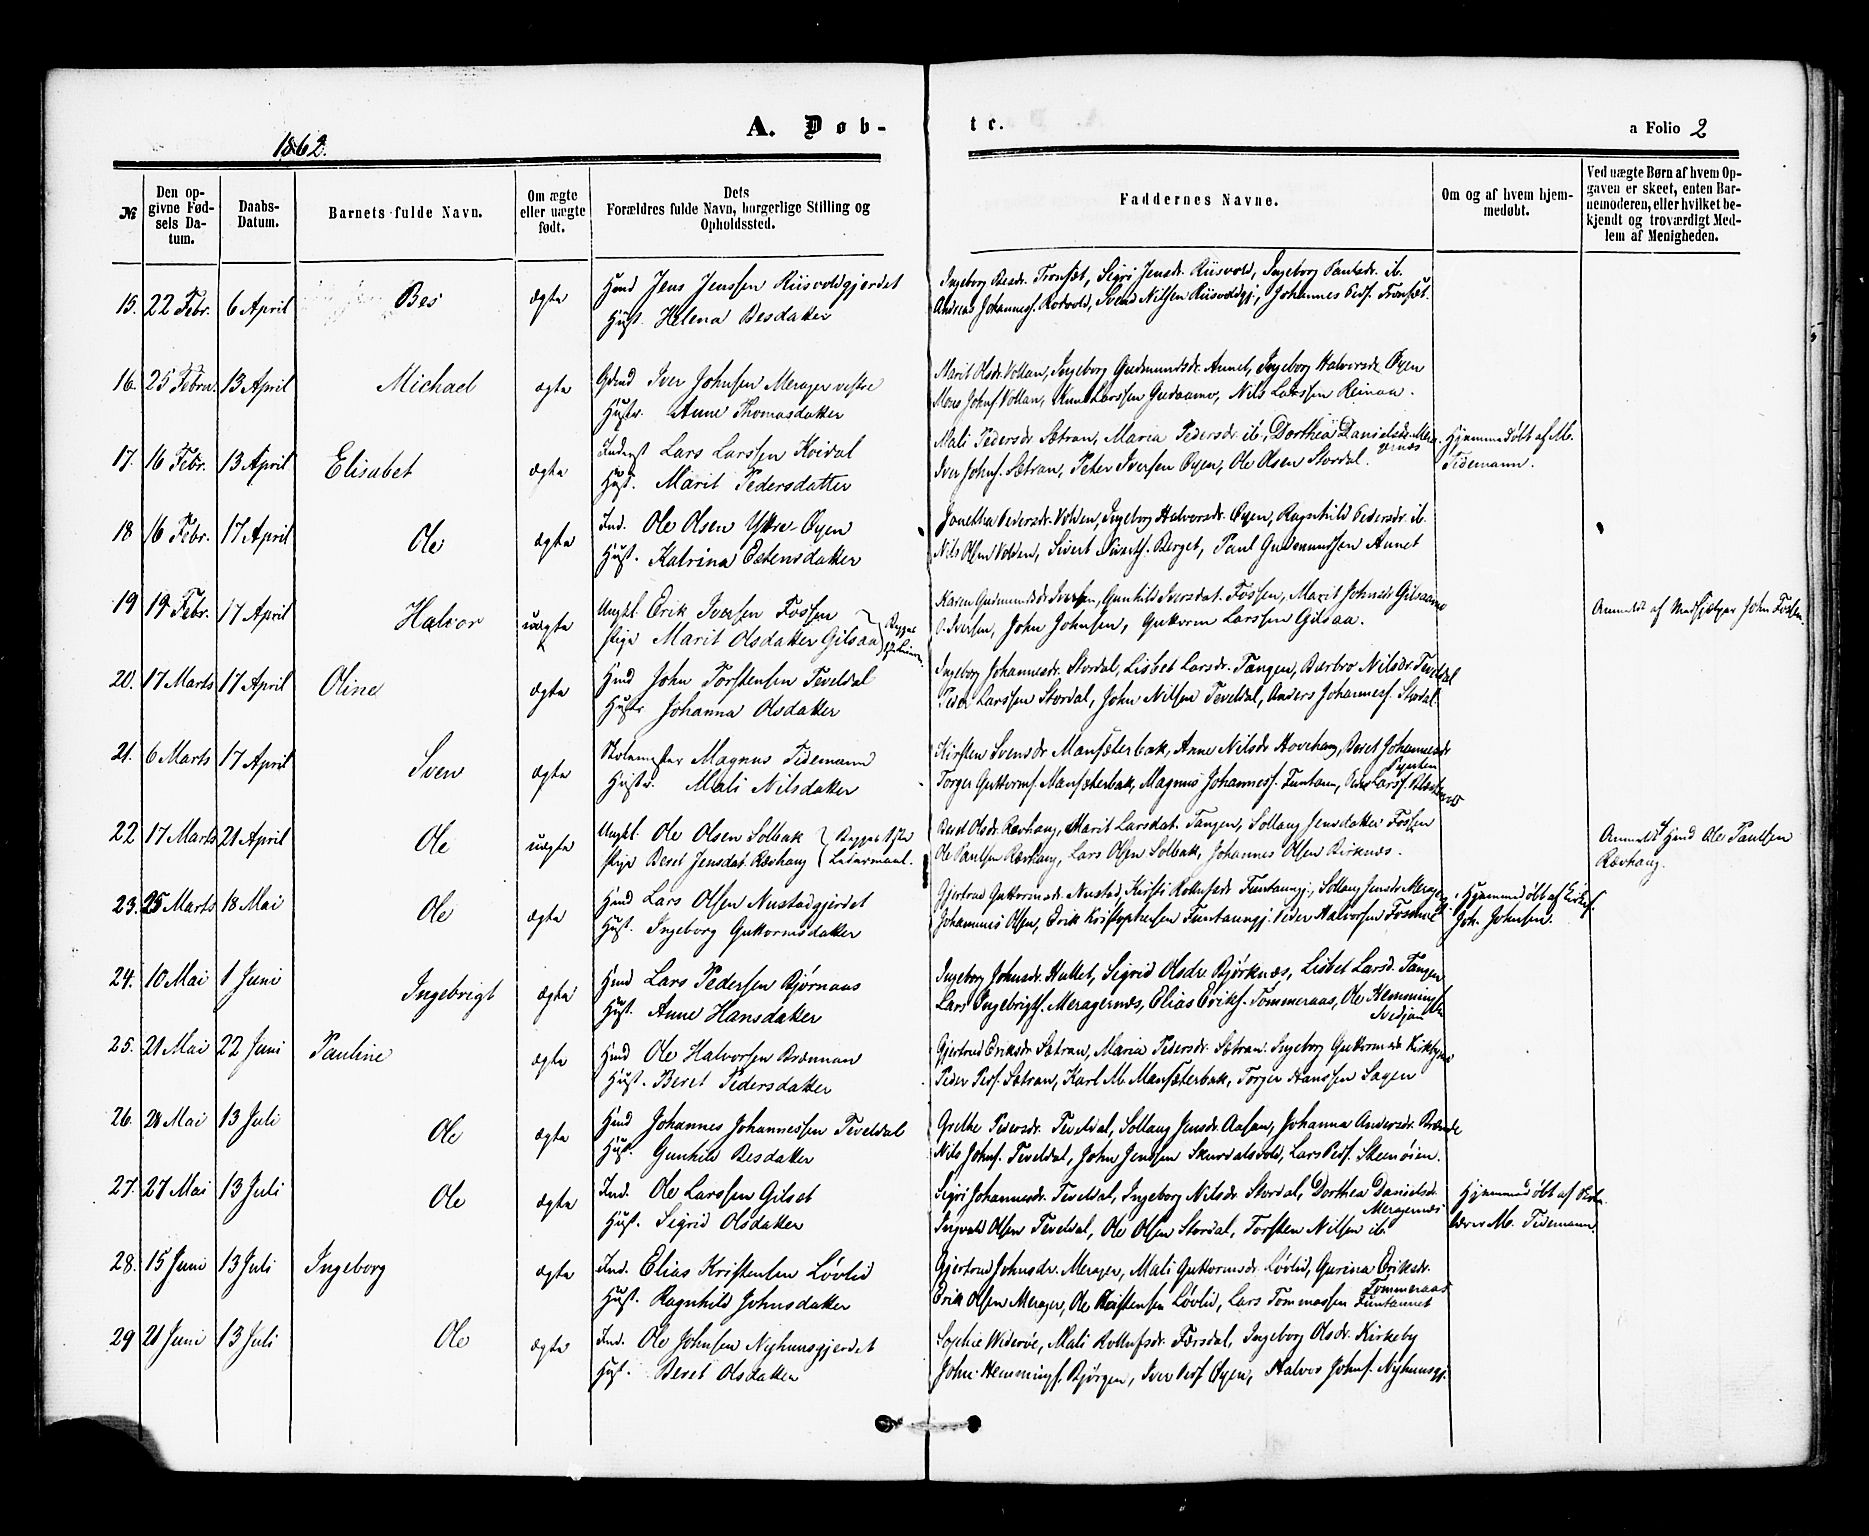 1862.
A. Døb-
te.
a Folio 2
№
Den op-
givne Fød-
sels Da-
tum.
Daabs-
Datum.
Barnets fulde Navn.
Om ægte
eller uægte
født.
Dets
Forældres fulde Navn, borgerlige Stilling og
Opholdssted.
Faddernes Navne.
Om og af hvem hjem-
medøbt.
Ved uægte Børn af hvem Op-
gaven er skeet, enten Bar-
nemoderen, eller hvilket be-
kjendt og troværdigt Med-
lem af Menigheden.
15. 22 Febr. 6 April Bes ægte
Hmd Jens Jenssen Riisvoldgjerdet
Hust. Helena Besdatter
Ingeborg Besdr. Tronsæt, Sigri Jensdr. Riisvold, Ingeborg Paulsdr. ib.
Andreas Johannesf. Rotvold, Svend Nilsen Riisvoldgj., Johannes Pedf. Tronsæt.
16. 25 Febru. 13 April Michael ægte
Gdmd Iver Johnsen Merager vestre
Hustr. Anne Thomasdatter
Marit Olsdr. Vollan, Ingeborg Gudmundsdr. Annet, Ingeborg Halvorsdr Øyen
Mons Johnf Vollan, Knut Larssen Gudaamo, Nils Larssen Reinaa.
17. 16 Febr. 13 April Elisabet ægte
Inderst Lars Larssen Kvidal
Hust. Marit Pedersdatter
Mali Pedersdr. Sætran, Maria Pedersdr. ib., Dorthea Danielsdr. Mera-
gernæs
Iver Johnf. Sætran, Peter Iversen Øyen, Ole Olsen Stordal.
Hjemmedøbt af M.
Tidemann.
18 16 Febr. 17 April Ole ægte
Ind. Ole Olsen Yttre-Øyen
Hust. Katrina Estensdatter
Jonetha Pedersdr. Volden, Ingeborg Halvorsdr. Øyen, Ragnhild Pedersdr. ib.
Nils Olsen Volden, Sivert Sivertf. Berget, Paul Gudmundssen Annet
19 19 Febr. 17 April Halvor uægte
Ungkl. Erik Iversen Fossen
Pige Marit Olsdatter Gilsaa
Begges
Karen Gudmundsdr Iversen, Gunhild Iversdat. Fossen, Marit Johnsdr Gilsaamo
O. Iversen, John Johnsen, Guttorm Larssen Gilsaa.
Anmeldt af Medhjelper John Fossen.
20. 17 Marts 17 April Oline ægte
Hmd John Torstensen Teveldal
Hustr Johanna Olsdatter
Ingeborg Johannesdr. Stordal, Lisbet Larsdr. Tangen, Barbro Nilsdr. Teveldal
Peder Larssen Stordal, John Nilsen Teveldal, Anders Johannesf. Stordal.
21. 6 Marts 17 April Sven ægte
Skolemester Magnus Tidemann
Hustr. Mali Nilsdatter
Kirsten Svensdr Mansæterbak, Anne Nilsdr Hovehaug, Beret Johannesdr
Torger Guttormf. Mansæterbak, Magnus Johannesf. Funtaun,
22 17 Marts 21 April Ole uægte
Ungkl. Ole Olsen Solbak
Pige Beret Jensdat. Rævhaug
Begges 1ste
Leiermaal.
Beret Olsdr. Rævhaug, Marit Larsdat. Tangen, Sollaug Jensdatter Fossen
Ole Paulsen Rævhaug, Lars Olsen Solbak, Johannes Olsen Birknæs.
Anmeldt af Hmd Ole Paulsen
Rævhaug.
23. 25 Marts 18 Mai Ole ægte
Hmd Lars Olsen Nustadgjerdet
Hust. Ingeborg Guttormsdatter
Gjertrud Guttormsdr. Nustad, Kirsti Rollufsdr. Funtaungj., Sollaug Jensdr. Merager
Johannes Olsen, Erik Kristophersen Funtaungj. Peder Halvorsen Fossmo
Hjemmedøbt af
Joh. Johnsen.
24. 10 Mai 1 Juni Ingebrigt ægte
Hmd Lars Pedersen Bjørnaas
Hust. Anne Hansdatter
Ingeborg Johnsdr. Hullet, Sigrid Olsdr Bjørknæs, Lisbet Larsd. Tangen
Lars Ingebrigtf. Meragernæs, Elias Erikf. Tømmeraas, Ole Hemmingf
Svedjan
25. 21 Mai 22 Juni Pauline ægte
Hmd Ole Halvorsen Brennan
Hust. Beret Pedersdatter
Gjertrud Eriksdr. Sætran, Maria Pedersdr. Sætran, Ingeborg Guttormsdr Kirkeby
Peder Pedf. Sætran, Karl M. Mansæterbak, Torger Hanssen Sagen
26. 28 Mai 13 Juli Ole ægte
Hmd Johannes Johannessen Teveldal
Hust. Gunhild Besdatter
Grethe Pedersdr. Teveldal, Sollaug Jensdr. Aasan, Johanna Andersdr. Brænde
Nils Johnf. Teveldal, John Jenssen Skurdalsvold, Lars Pedf. Steenøien.
27. 27 Mai 13 Juli Ole ægte
Ind. Ole Larssen Gilset
Hust. Sigrid Olsdatter
Sigri Johannesdr. Teveldal, Ingeborg Nilsdr. Stordal, Dorthea Danielsdr.
Meragernæs
Ingvald Olsen Teveldal, Ole Olsen Stordal, Torsten Nilsen ib.
Hjemmedøbt af Skole-
lærer M. Tidemann.
28. 15 Juni 13 Juli Ingeborg ægte
Ind. Elias Kristensen Løvlid
Hust. Ragnhild Johnsdatter
Gjertrud Johnsdr. Merager, Mali Guttormsdr. Løvlid, Gurina Eriksdr.
Tømmeraas
Erik Olsen Merager, Ole Kristensen Løvlid, Lars Tommassen Funtaunet
29 21 Juni 13 Juli Ole ægte
Ind. Ole Johnsen Nyhuusgjerdet
Hust. Beret Olsdatter
Sophie Widerøe, Mali Rollufsdr. Færsdal, Ingeborg Olsdr. Kirkeby
John Hemmingf. Bjørgen, Iver Pedf Øyen, Halvor Johnf. Nyhuusgj.